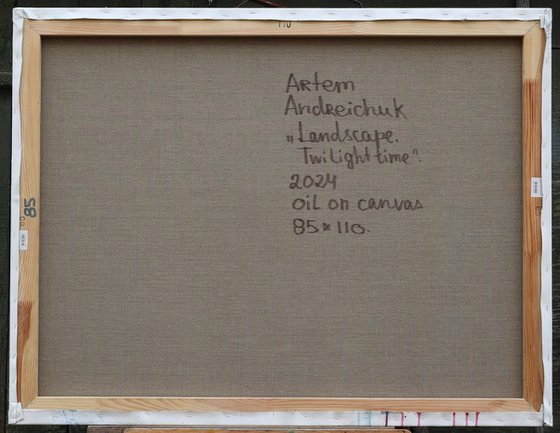 110
Artem
Andreichuk
„Landscape.
Twilight time".
2024
oil on canvas
85 x 110.
85